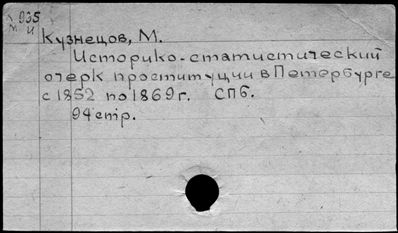 935
М И
Кузнецов, М.
Историко-статистический
очерк проституции в Петербурге
с 1852 по 1869 г. СПб.
94 стр.